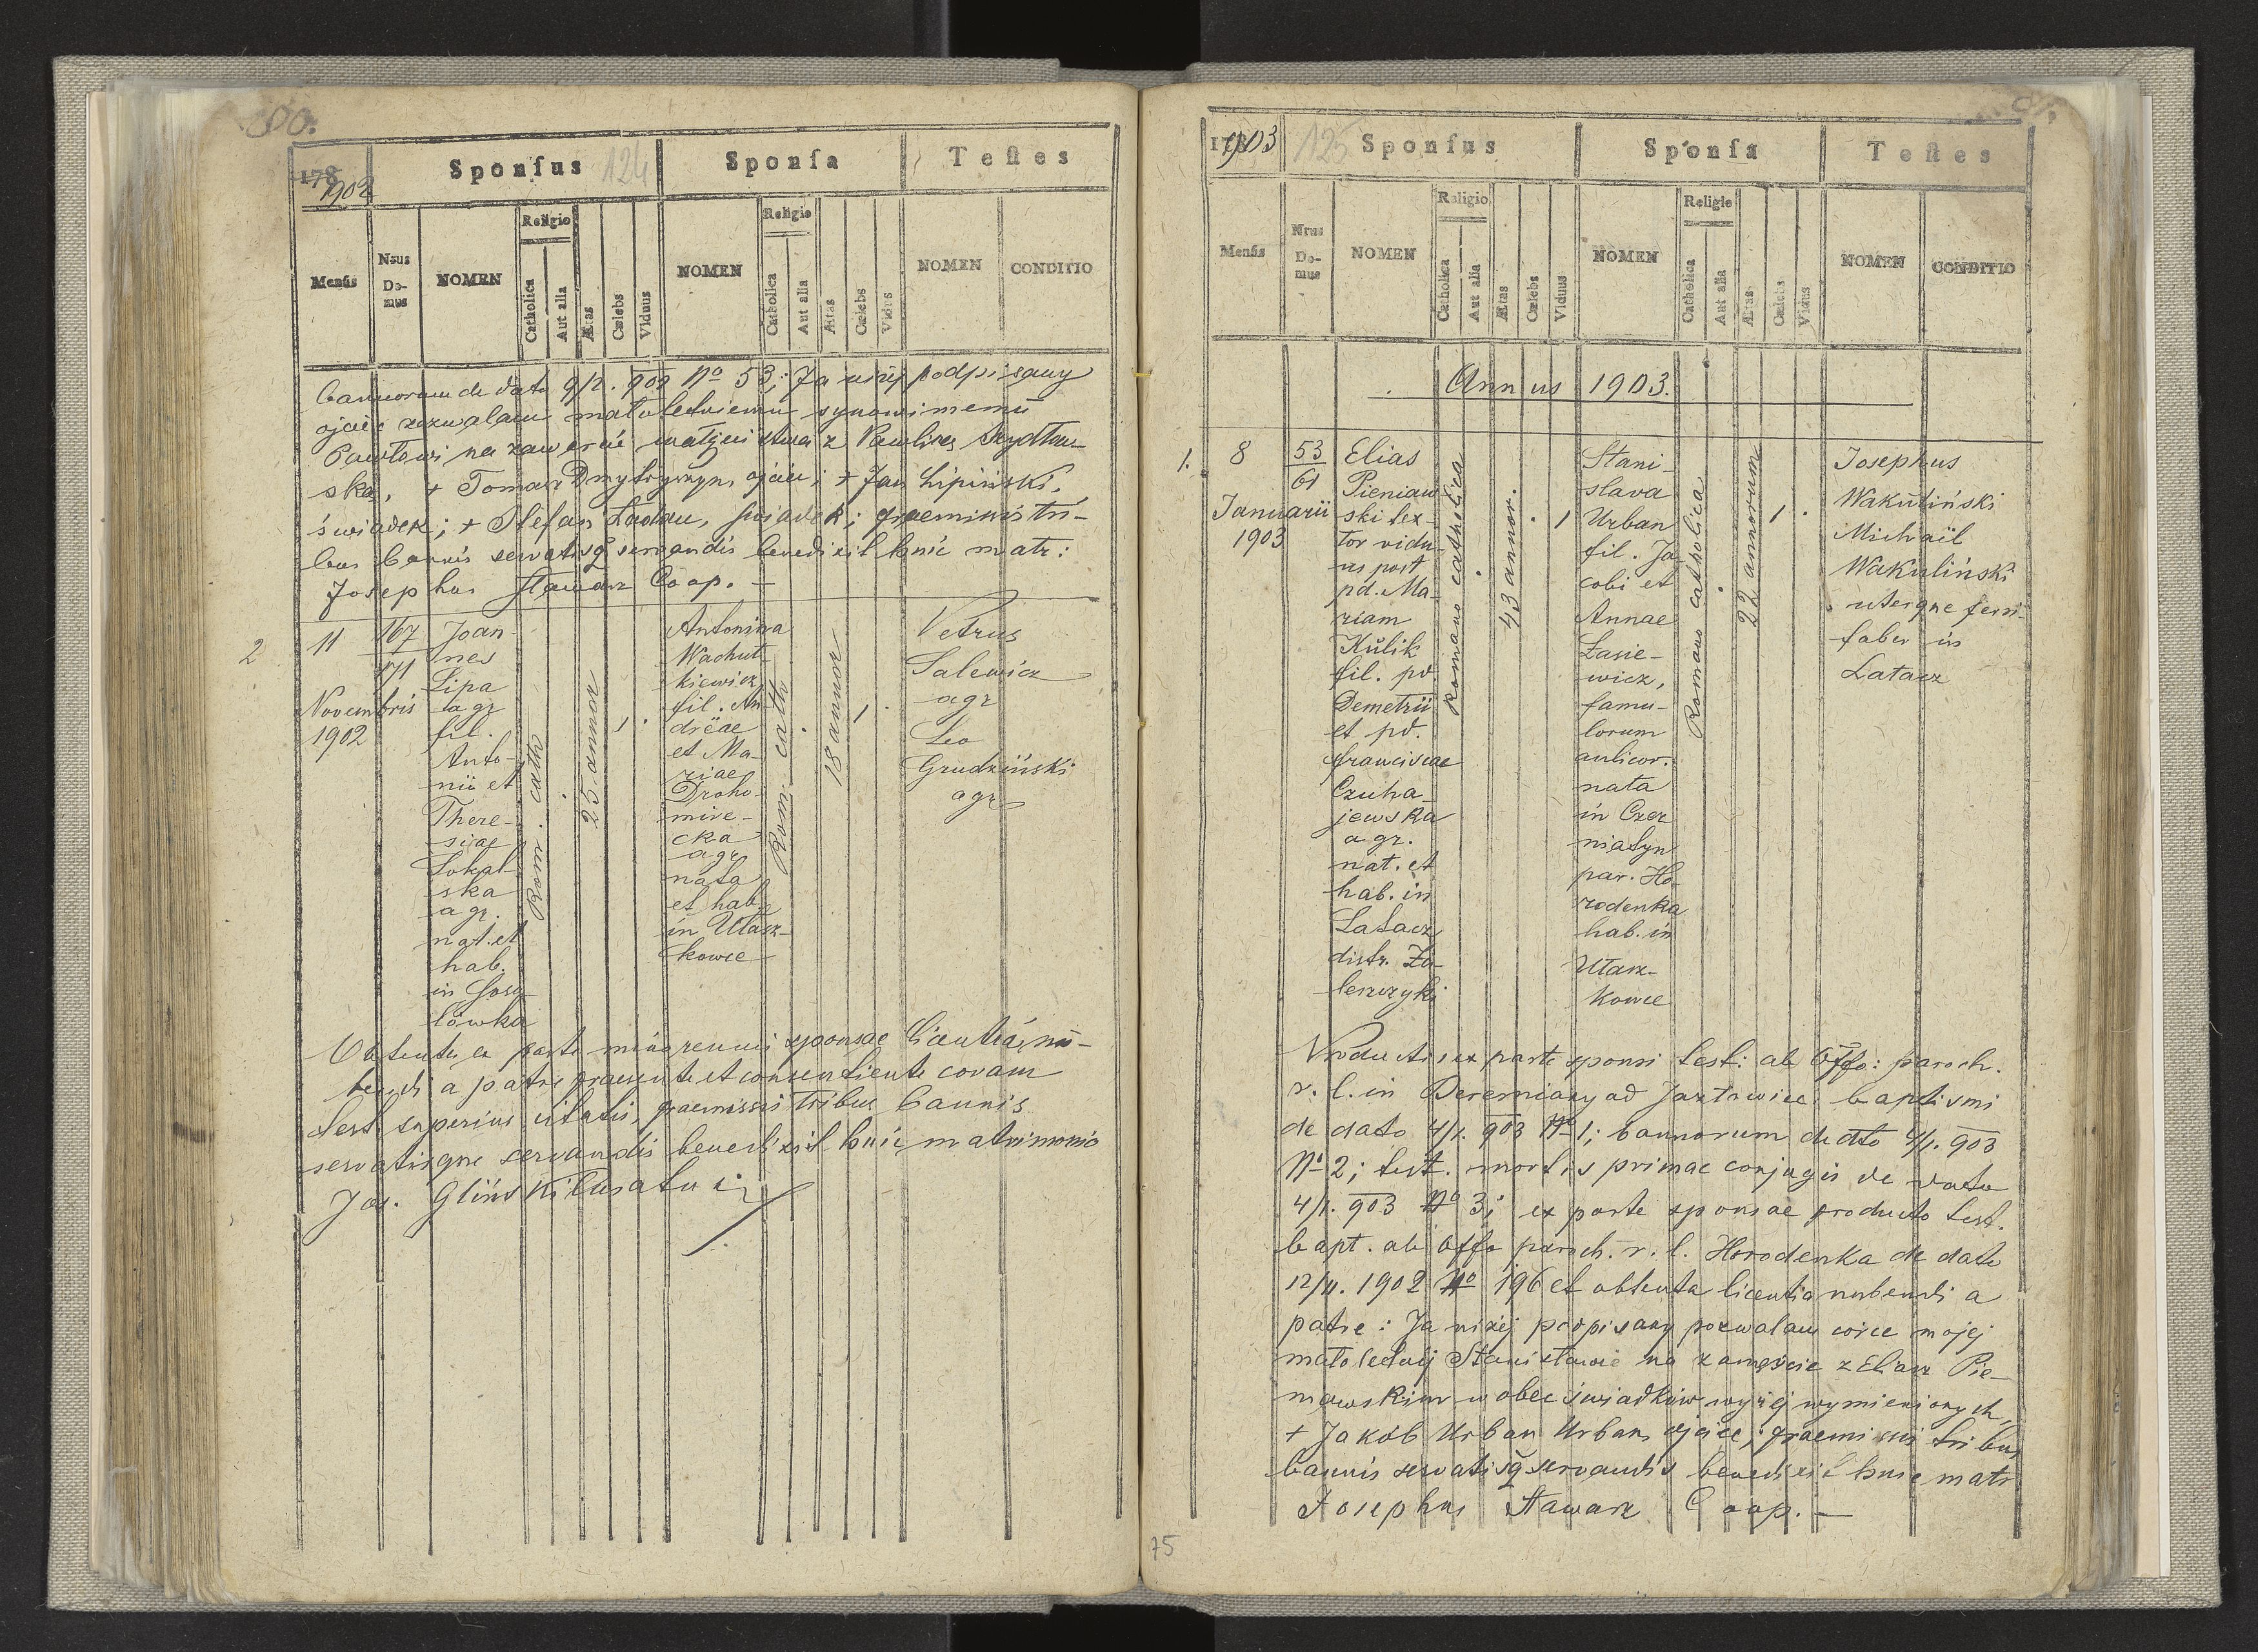 80.
178
1902
Sponſus
124
Sponſa
Teſtes
Menſis
Nrus Do-mus
NOMEN
Religio
Catholica
Aut alia
Ætas
Cælebs
Viduus
NOMEN
Religio
Catholica
Aut alia
Ætas
Cælebs
Vidus
NOMEN
CONDITIO
bannorum de dato 9/2. 902 No 53; Ja niżej podpisany
ojciec zezwalam małoletniemu synowi memu
Pawłowi na zawarcie małżeństwa z Pauliną Szydłow-
ską, + Tomasz Dmytryszyn, ojciec; + Jan Lipiński,
świadek; + Stefan Ładau, świadek; praemissis tri-
bus bannis servatisq servandis benedixit huic matr:
Josephus Stawarz Coop. —
2
11
167
171
Novembris
1902
Joan-
nes
Lipa
agr
fil.
Anto-
nii et
There-
siae
Sokal-
ska
agr.
nat. et
hab.
in Josy
łówka
Rom. cath
25 annor
1.
Antonina
Wachut-
kiewicz
fil. An-
dreae
et Ma-
riae
Droho-
mire-
cka
agr
nata
et hab.
in Ułasz-
kowce
Rom. cath
18 annor
1.
Petrus
Salewicz
agr
Leo
Grudziński
agr
Obtenta ex parte minorennis sponsae licentia nu-
bendi a patre praesente et consentiente coram
test. superius citatis, praemissis tribus bannis
servatisque servandis benedixit huic matrimonio
Jos. Gliński
1903
125
Sponſus
Sponſa
Teſtes
Menſis
Nrus Do-mus
NOMEN
Religio
Catholica
Aut alia
Ætas
Cælebs
Viduus
NOMEN
Religio
Catholica
Aut alia
Ætas
Cælebs
Vidus
NOMEN
CONDITIO
Annus 1903.
1.
8
53
61
Januarii
1903
Elias
Pieniaw-
ski tex-
tor vidu-
us post
pd. Ma-
riam
Kulik
fil. pd
Demetrii
et pd.
Franciscae
Czuha-
jewska
agr.
nat. et
hab. in
Latacz
distr. Za-
leszczyki
Romano catholica
43 annor.
1
Stani-
slava
Urban
fil. Ja-
cobi et
Annae
Łasie-
wicz,
famu-
lorum
aulicor.
nata
in Czer
niatyn
par. Ho-
rodenka
hab. in
Ułasz-
kowce
Romano catholica
22 annorum
1.
Josephus
Wakuliński
Michaël
Wakuliński
uterque ferri-
faber in
Latacz
Productis ex parte sponsi test: ab Offo: paroch.
r. l. in Deremiany ad Jazłowiec baptismi
de dato 4/1. 903 No 1; bannorum de dto 4/1. 903
No 2; test. mortis primae conjugis de dato
4/1. 903 No 3; ex parte sponsae producto test.
bapt. ab Offo paroch. r. l. Horodenka de dato
12/11. 1902 No 196 et obtenta licentia nubendi a
patre: Ja niżej podpisany pozwalam córce mojej
małoletniej Stanisławie na zamęście z Eliasz Pie-
niawskim w obec świadków wyżej wymienionych,
+ Jakób Urban Urban, ojciec; praemissis tribus
bannis servatisq servandis benedixit huic matr
Josephus Stawarz Coop. —
75